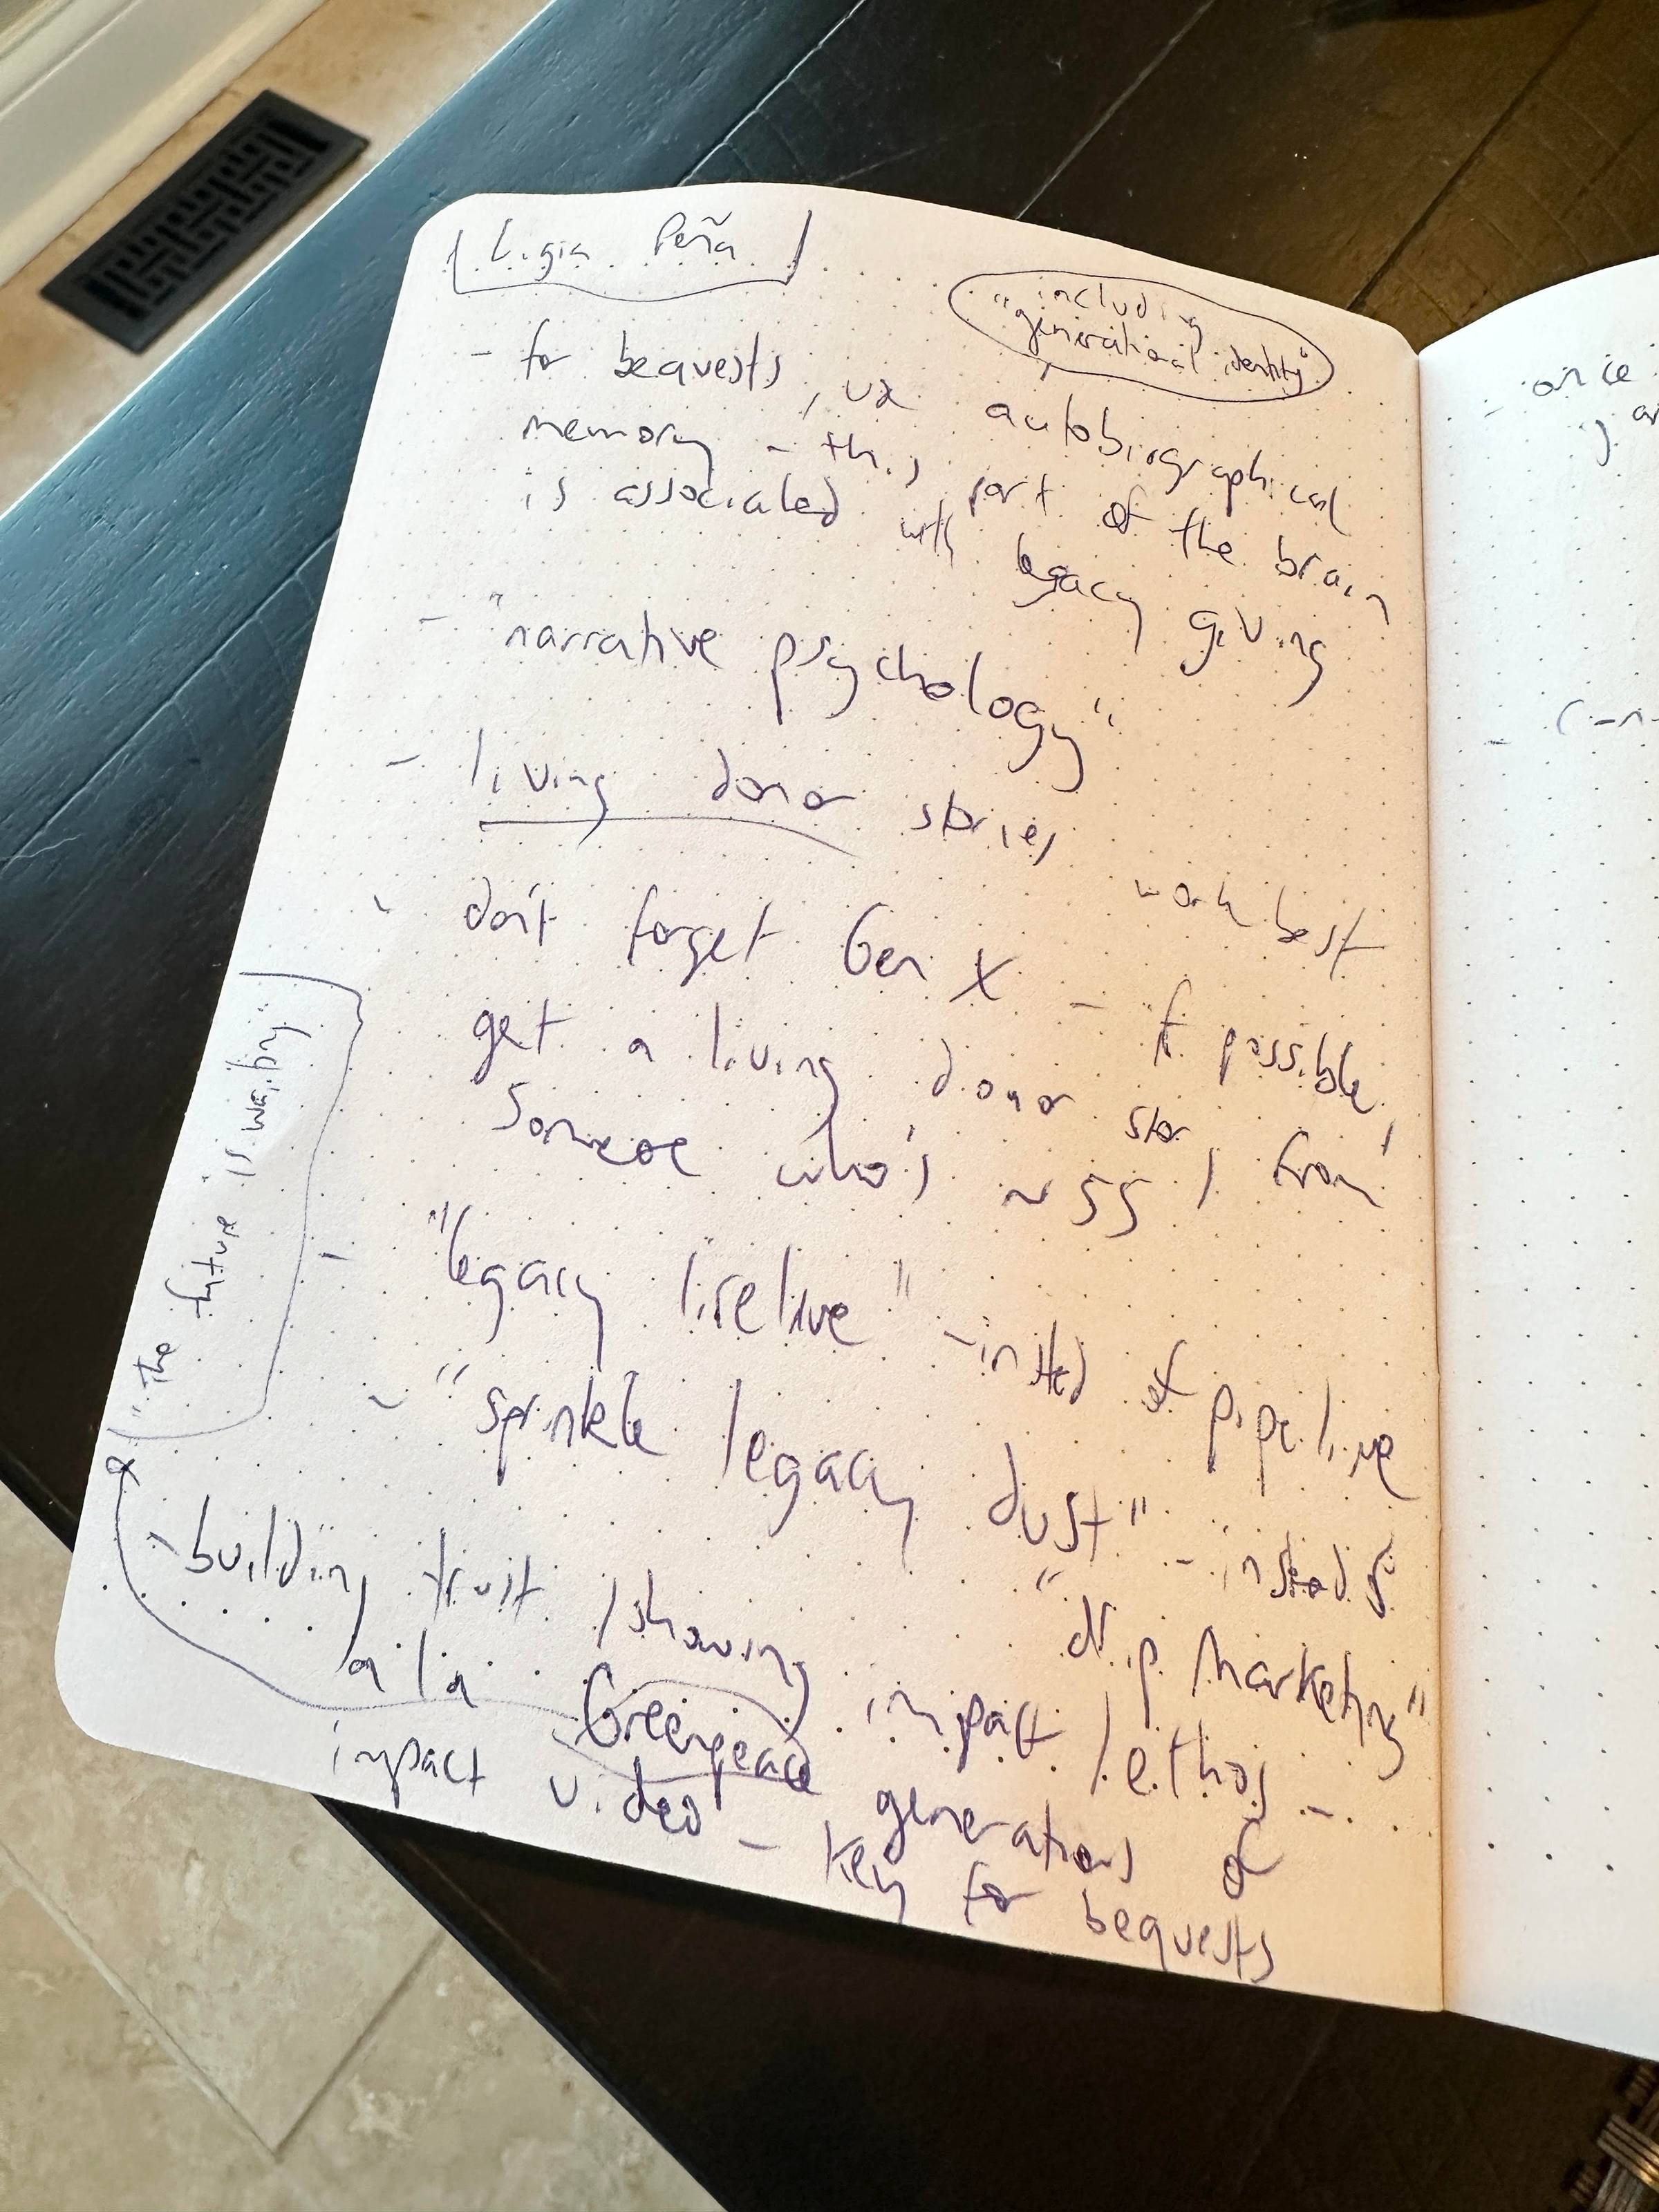 Ligia Peña
including
"generational identity"
- for bequests, use autobiographical
memory - this part of the brain
is associated with legacy giving
- "narrative psychology"
- living donor stories work best
- don't forget Gen X - if possible,
get a living donor story from
someone who's ~55
- "legacy lifeline" - instead of pipeline
- "sprinkle legacy dust" - instead of
"drip marketing"
- building trust / showing impact / ethos -
a la Greenpeace generations of
impact video - key for bequests
"the future is waiting"
- once